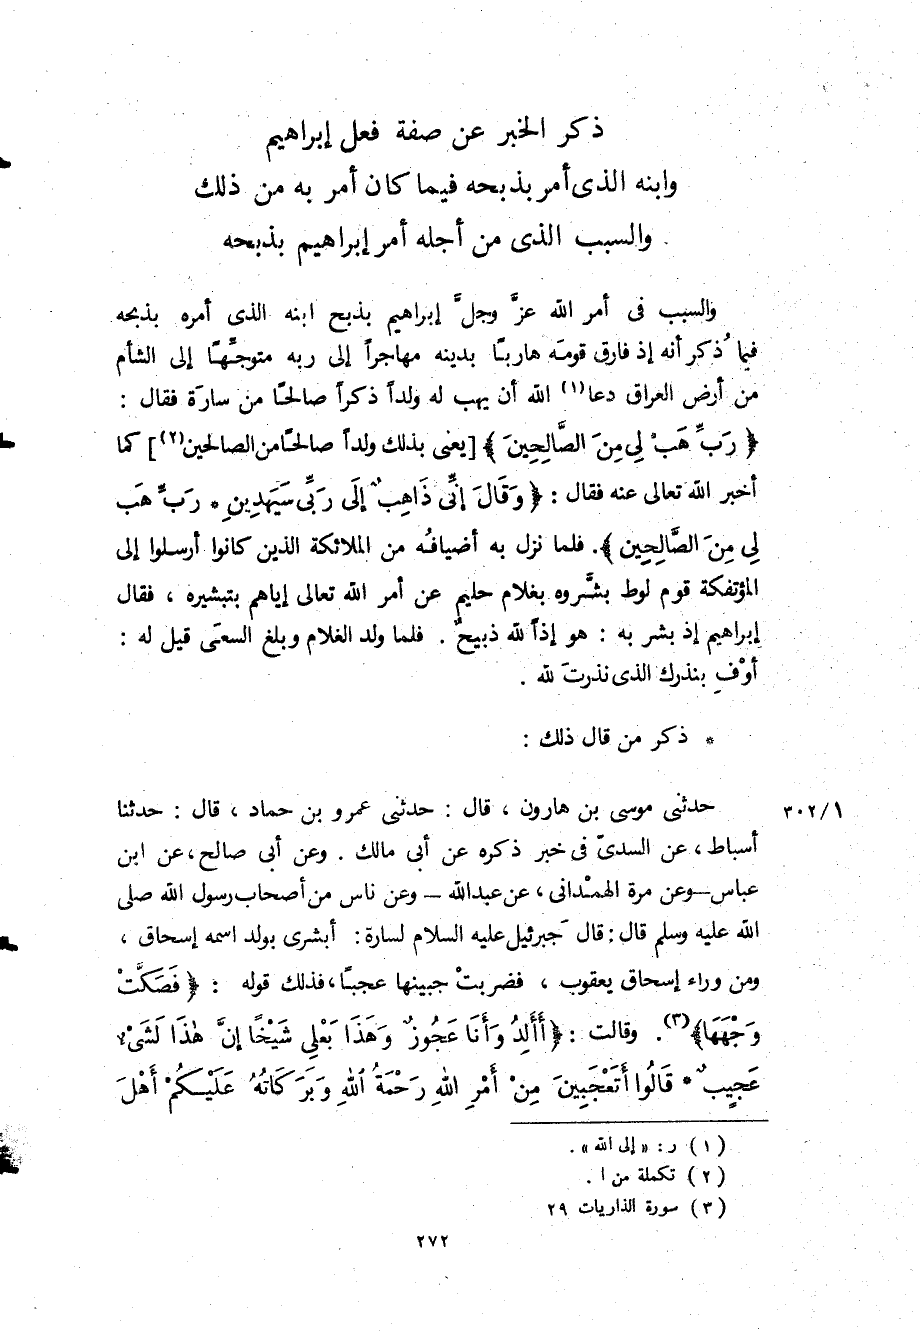 ذكر الخبر عن صفة فعل إبراهيم
وابنه الذى أمر بذبحه فيما كان أمر به من ذلك
والسبب الذى من أجله أمر إبراهيم بذبحه
والسبب فى أمر الله عزَّ وجلَّ إبراهيم بذبح ابنه الذى أمره بذبحه
فيما ذُكر أنه إذ فارق قومَه هاربًا بدينه مهاجراً إلى ربه متوجِّهًا إلى الشأم
من أرض العراق دعا(١) الله أن يهب له ولداً ذكراً صالحًا من سارَة فقال :
﴿ رَبِّ هَبْ لِى مِنَ الصَّالِحِينَ ﴾ [يعنى بذلك ولداً صالحًا من الصالحين(٢)] كما
أخبر الله تعالى عنه فقال : ﴿ وَقَالَ إِنِّى ذَاهِبٌ إِلَى رَبِّى سَيَهْدِينِ * رَبِّ هَبْ
لِى مِنَ الصَّالِحِين ﴾. فلما نزل به أضيافُه من الملائكة الذين كانوا أرسلوا إلى
المؤتفكة قوم لوط بشَّروه بغلام حليم عن أمر الله تعالى إياهم بتبشيره ، فقال
إبراهيم إذ بشر به : هو إذاً لله ذبيحٌ . فلما ولد الغلام وبلغ السعَى قيل له :
أوْفِ بنذرك الذى نذرتَ لله .
* ذكر من قال ذلك :
٣٠٢/١ حدثنى موسى بن هارون ، قال : حدثنى عمرو بن حماد ، قال : حدثنا
أسباط، عن السدىّ فى خبر ذكره عن أبى مالك . وعن أبى صالح، عن ابن
عباس – وعن مرة الهمْدانى ، عن عبدالله – وعن ناس من أصحاب رسول الله صلى
الله عليه وسلم قال : قال جَبرئيل عليه السلام لسارة : أبشرى بولد اسمه إسحاق ،
ومن وراء إسحاق يعقوب ، فضربتْ جبينها عجبًا، فذلك قوله : ﴿ فَصَكَّتْ
وَجْهَهَا﴾(٣). وقالت : ﴿أَأَلِدُ وَأَنَا عَجُوزٌ وَهَذَا بَعْلِى شَيْخًا إنَّ هٰذَا لَشَىْءٌ
عَجِيبٌ * قَالُوا أَتَعْجَبِينَ مِنْ أَمْرِ اللهِ رَحْمَةُ اللهِ وَبَرَكَاتُهُ عَلَيْكُمْ أَهْلَ
(١) ر : « إلى الله » .
(٢) تكملة من ا .
(٣) سورة الذاريات ٢٩
٢٧٢